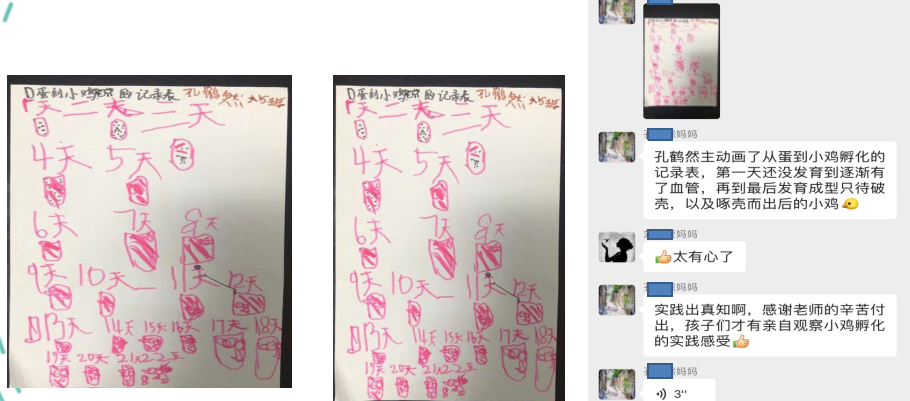 蛋到小鸡 的记录表 孔鹤然 大5班
1天 二天 三天
4天 5天
6天 7天 8天
9天 10天 11天 12天
13天 14天 15天 16天 17天 18天
19天 20天 21天 22天
蛋到小鸡 的记录表 孔鹤然 大5班
1天 二天 三天
4天 5天
6天 7天 8天
9天 10天 11天 12天
13天 14天 15天 16天 17天 18天
19天 20天 21天 22天
妈妈
孔鹤然主动画了从蛋到小鸡孵化的
记录表，第一天还没发育到逐渐有
了血管，再到最后发育成型只待破
壳，以及啄壳而出后的小鸡
妈妈
太有心了
妈妈
实践出真知啊，感谢老师的辛苦付
出，孩子们才有亲自观察小鸡孵化
的实践感受
妈妈
3"